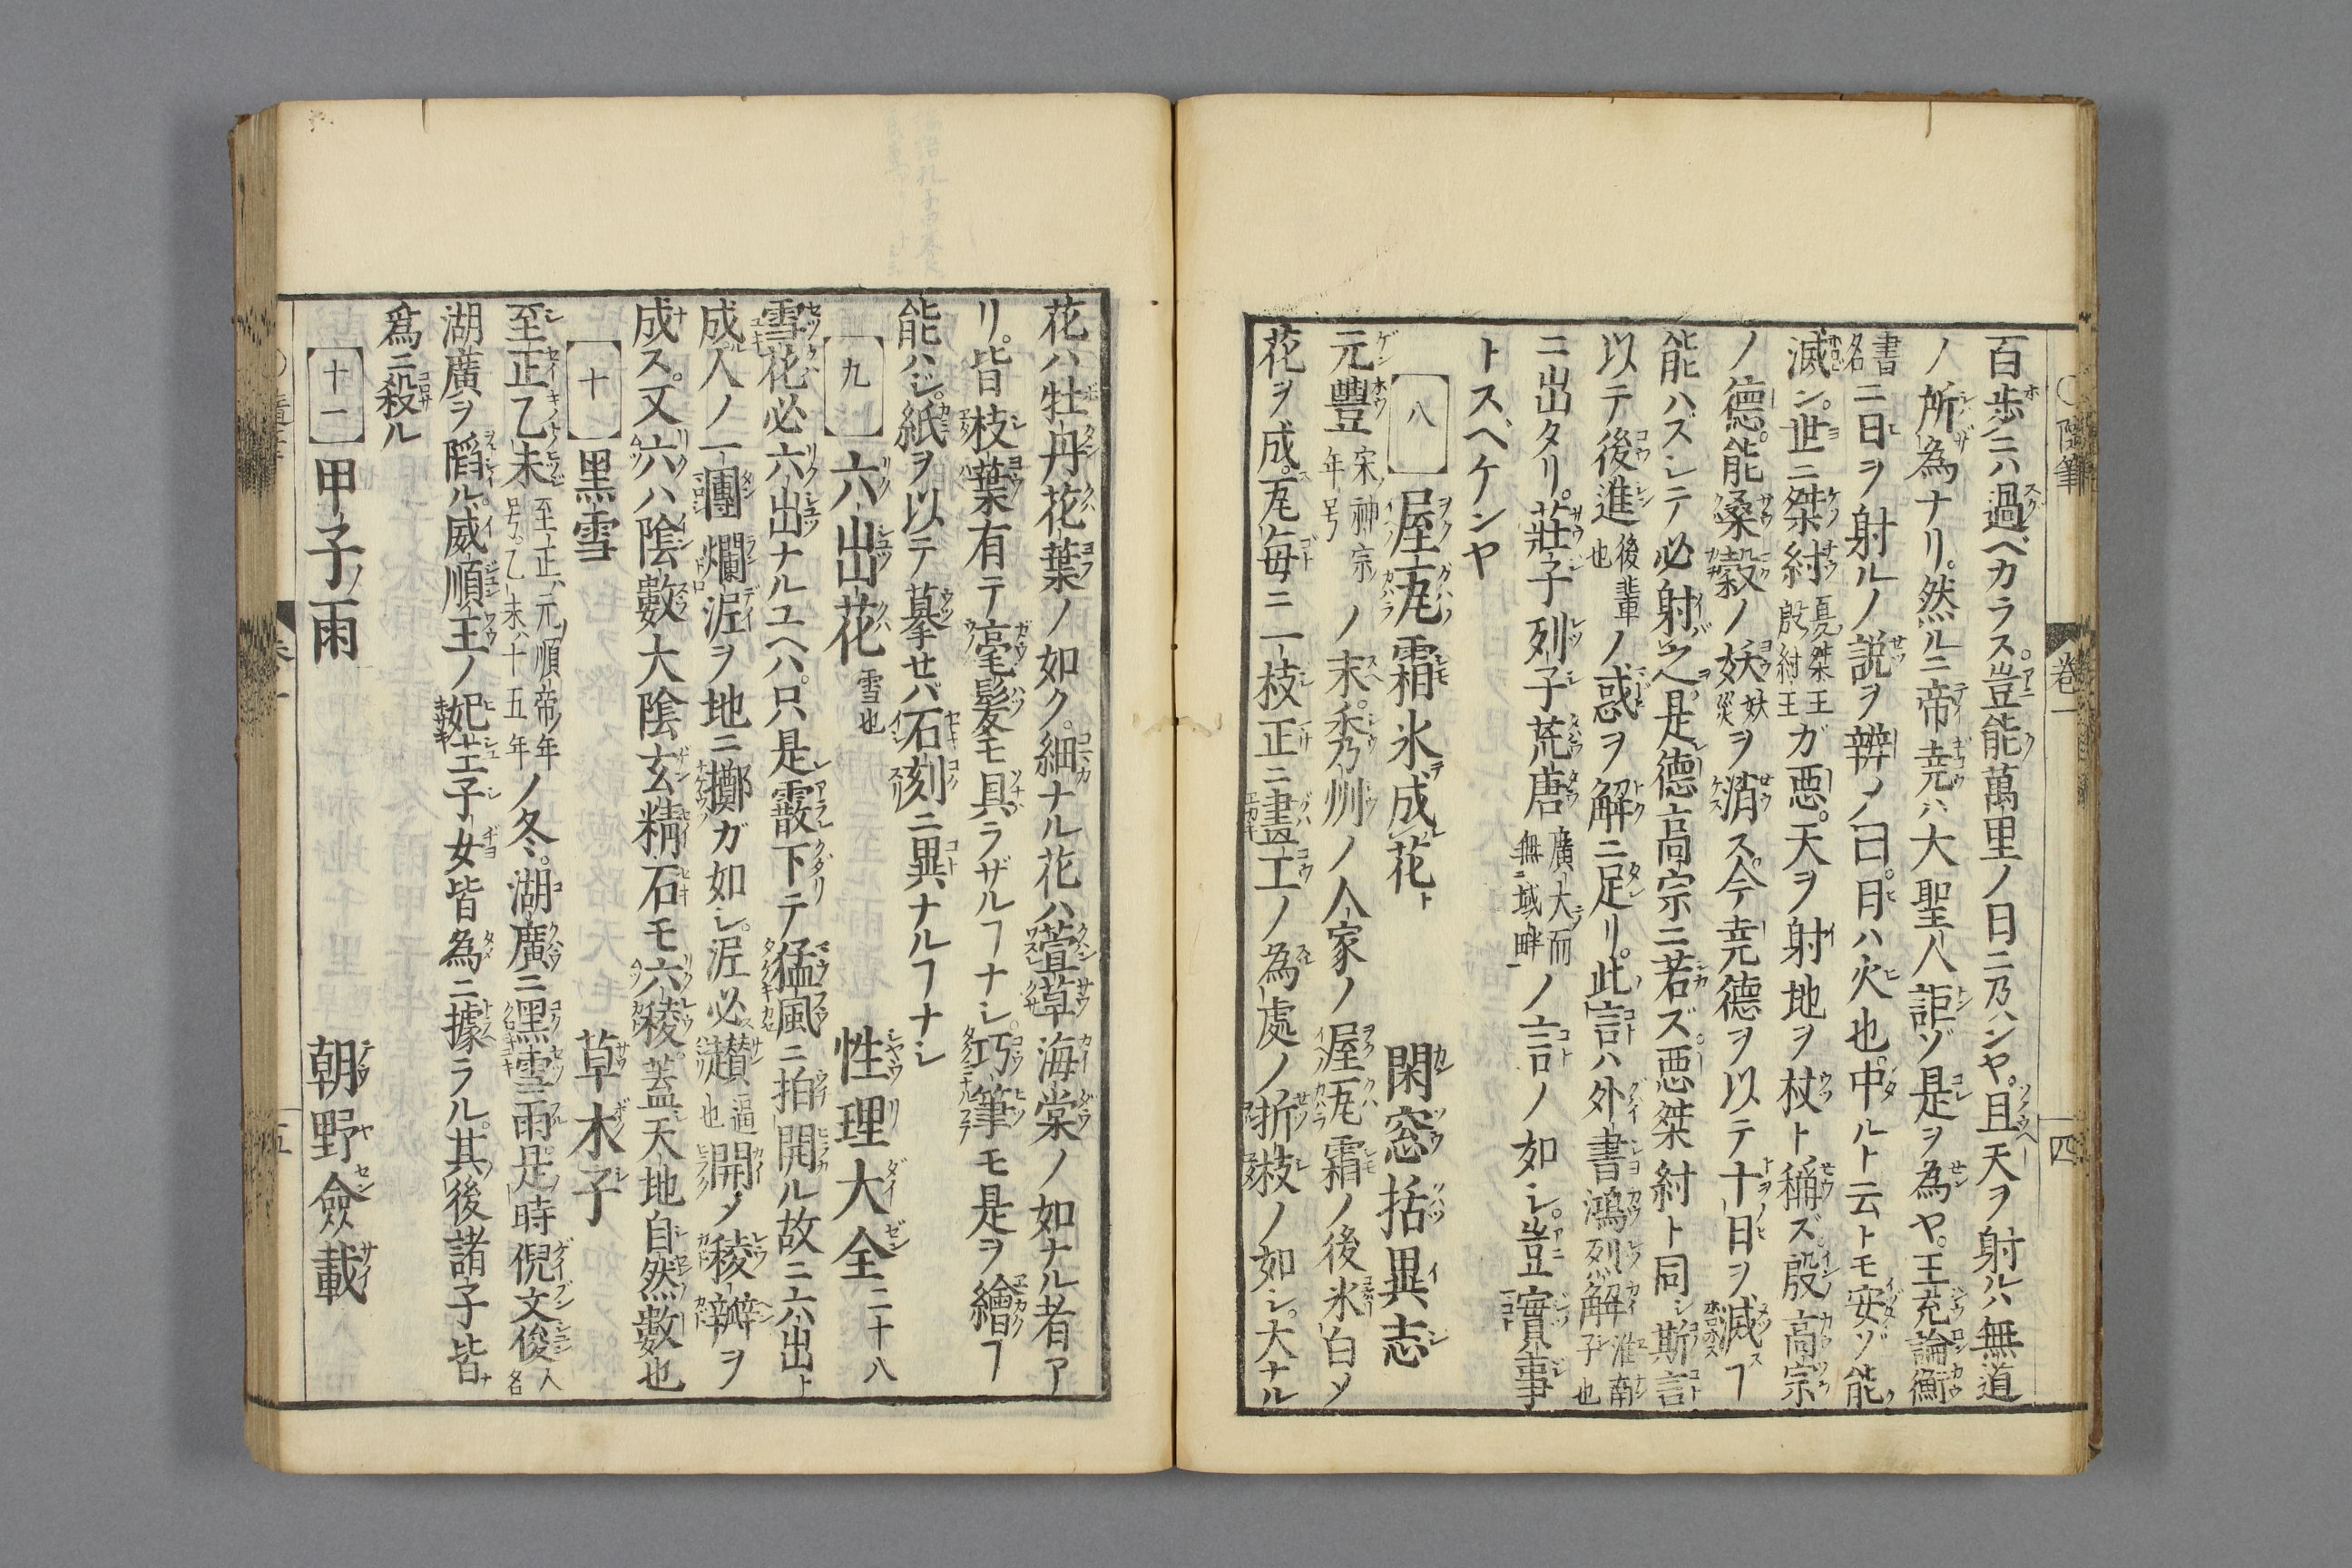 百歩ニハ過ベカラス。豈能萬里ノ日ニ乃ハンヤ。且天ヲ射ルハ無道
ノ所為ナリ。然ルニ帝堯ハ大聖人詎ゾ是ヲ為ヤ。王充論衡
書名ニ日ヲ射ルノ説ヲ辨ノ曰。日ハ火也。中ルト云トモ安ゾ能
滅ン。世ニ桀紂夏桀王殷紂王ガ悪。天ヲ射地ヲ杖ト稱ズ。殷高宗
ノ德。能桑穀ノ妖妖災ヲ消ス。今堯德ヲ以テ十日ヲ滅スヿ
能ハズシテ必射之。是德高宗ニ若ズ。悪桀紂ト同シ。斯言
以テ後進後輩也ノ惑ヲ解ニ足リ。此言ハ外書鴻烈解淮南子也
ニ出タリ。莊子列子荒唐廣大ニ而無域畔ノ言ノ如シ。豈實事
トスベケンヤ
八 屋瓦霜氷成花 閑窓括異志
元豐宋神宗ノ年号ノ末。秀州ノ人家ノ屋瓦霜ノ後氷白メ
花ヲ成ス。瓦毎ニ一枝正ニ畫工ノ為處ノ折枝ノ如シ。大ナル
花ハ牡丹花葉ノ如ク。細ナル花ハ萱草海棠ノ如ナル者ア
リ。皆枝葉有テ毫髮モ具ラザルヿナシ。巧筆モ是ヲ繪ヿ
能ハジ。紙ヲ以テ摹セバ石刻ニ異ナルヿナシ
九 六出花雪也 性理大全二十八
雪花必六出ナルユヘハ。只是霰下テ猛風ニ拍開ル故ニ六出ト
成。人ノ一團爛泥ヲ地ニ擲ガ如シ。泥必逼也開メ稜瓣ヲ
成ス。又六ハ陰數大陰玄精石モ六稜。蓋天地自然數也
十 黒雪 草木子
至正乙未至正ハ元ノ順帝ノ年号乙未ハ十五年ノ冬。湖廣ニ黒雪雨。是時倪文俊人名
湖廣ヲ陷ル。威順王ノ妃主子女皆為ニ據ラル。其後諸子皆
爲ニ殺ル
十一 甲子ノ雨 朝野僉載
卷一
四